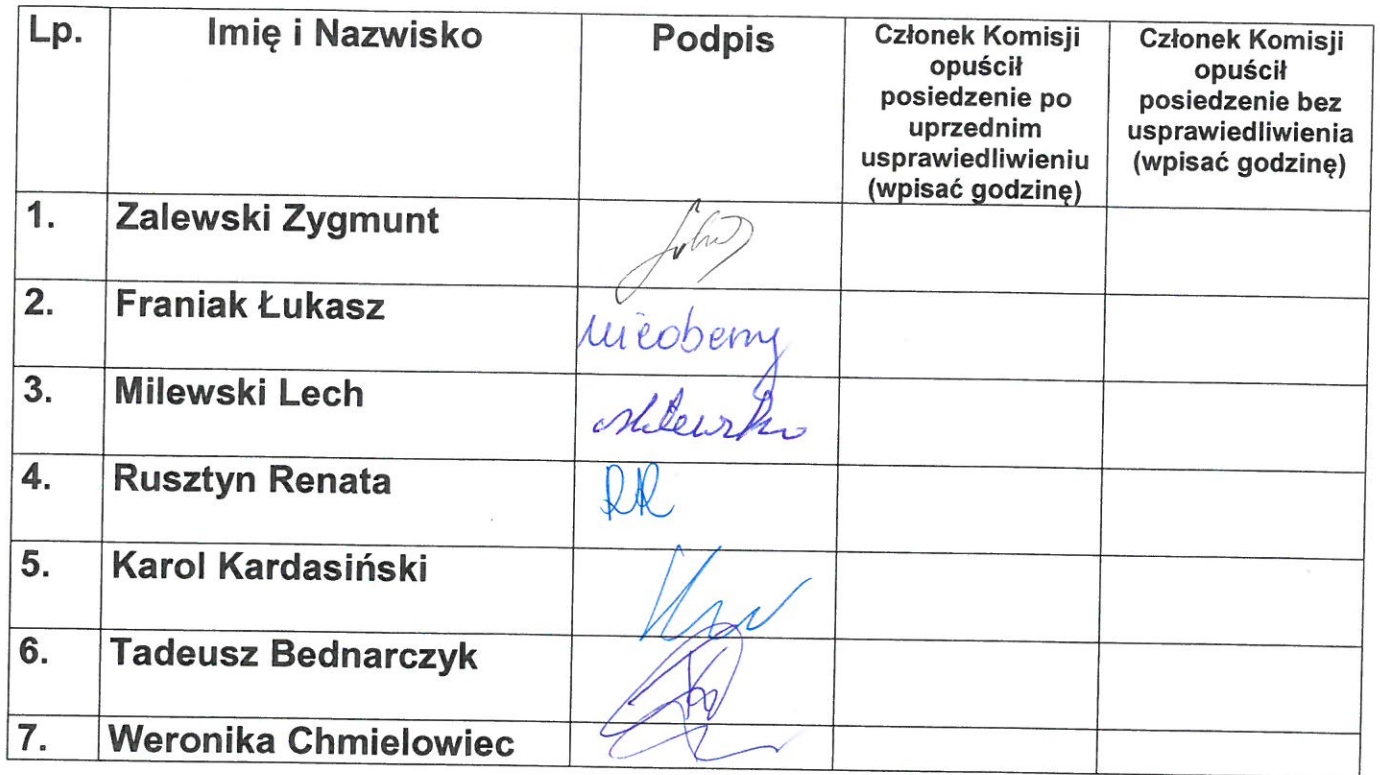 Lp.
Imię i Nazwisko
Podpis
Członek Komisji
opuścił
posiedzenie po
uprzednim
usprawiedliwieniu
(wpisać godzinę)
Członek Komisji
opuścił
posiedzenie bez
usprawiedliwienia
(wpisać godzinę)
1. Zalewski Zygmunt
2. Franiak Łukasz nieobecny
3. Milewski Lech
4. Rusztyn Renata RR
5. Karol Kardasiński
6. Tadeusz Bednarczyk
7. Weronika Chmielowiec